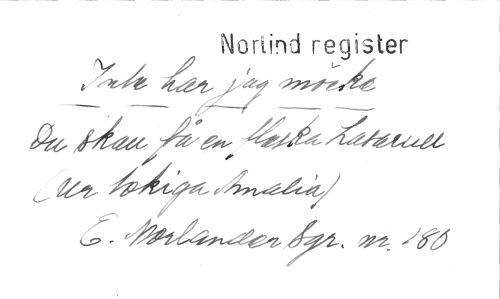 Norlind register
Inte har jag möcke
Du skall få en flaska Lacarull
(ur tokiga Amalia)
E. Norlander Sgr. nr. 180